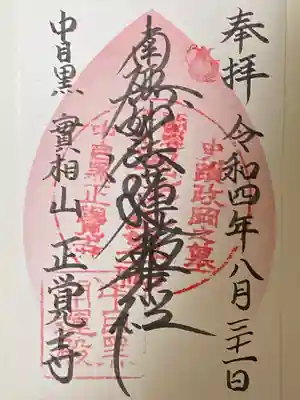 奉拝 令和四年八月三十一日
南無妙法蓮華経
中目黒 實相山 正覚寺
政岡之墓
中目黒正覺寺